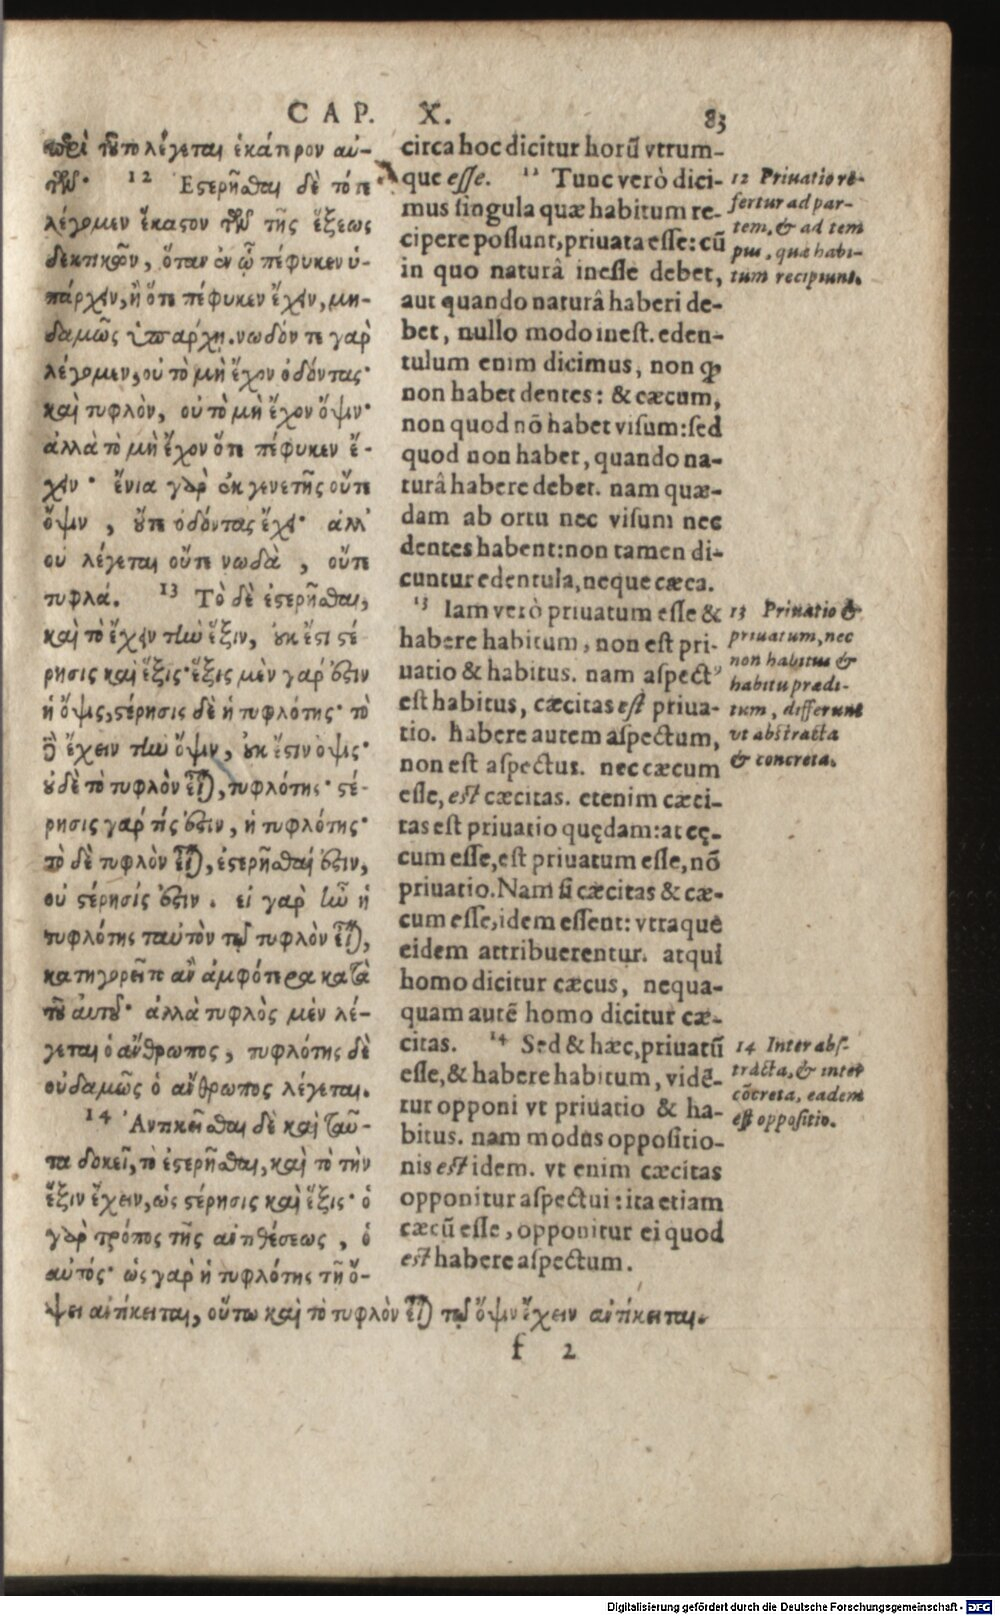 CAP. X. 83
περὶ τοῦτο λέγεται ἑκάτερον αὐ-
τῶν. 12 Ἐστερῆσθαι δὲ τότε
λέγομεν ἕκαστον τῶν τῆς ἕξεως
δεκτικῶν, ὅταν ἐν ᾧ πέφυκεν ὑ-
πάρχειν, ἢ ὅτε πέφυκεν ἔχειν, μη-
δαμῶς ὑπάρχῃ. νωδόν τε γὰρ
λέγομεν, οὐ τὸ μὴ ἔχον ὀδόντας·
καὶ τυφλὸν, οὐ τὸ μὴ ἔχον ὄψιν·
ἀλλὰ τὸ μὴ ἔχον ὅτε πέφυκεν ἔ-
χειν· ἔνια γὰρ ἐκ γενετῆς οὔτε
ὄψιν, οὔτε ὀδόντας ἔχει· ἀλλ'
οὐ λέγεται οὔτε νωδὰ, οὔτε
τυφλά. 13 Τὸ δὲ ἐστερῆσθαι,
καὶ τὸ ἔχειν τὴν ἕξιν, οὐκ ἔστι στέ-
ρησις καὶ ἕξις· ἕξις μὲν γάρ ἐστιν
ἡ ὄψις, στέρησις δὲ ἡ τυφλότης· τὸ
δὲ ἔχειν τὴν ὄψιν, οὐκ ἔστιν ὄψις·
οὐδὲ τὸ τυφλὸν εἶναι, τυφλότης· στέ-
ρησις γάρ τίς ἐστιν, ἡ τυφλότης·
τὸ δὲ τυφλὸν εἶναι, ἐστερῆσθαί ἐστιν,
οὐ στέρησίς ἐστιν. εἰ γὰρ ἦν ἡ
τυφλότης ταὐτὸν τῷ τυφλὸν εἶναι,
κατηγορεῖτο ἂν ἀμφότερα κατὰ
τοῦ αὐτοῦ· ἀλλὰ τυφλὸς μὲν λέ-
γεται ὁ ἄνθρωπος, τυφλότης δὲ
οὐδαμῶς ὁ ἄνθρωπος λέγεται.
14 Ἀντικεῖσθαι δὲ καὶ ταῦ-
τα δοκεῖ, τὸ ἐστερῆσθαι, καὶ τὸ τὴν
ἕξιν ἔχειν, ὡς στέρησις καὶ ἕξις· ὁ
γὰρ τρόπος τῆς ἀντιθέσεως, ὁ
αὐτός· ὡς γὰρ ἡ τυφλότης τῇ ὄ-
ψει ἀντίκειται, οὕτω καὶ τὸ τυφλὸν εἶναι τῷ ὄψιν ἔχειν ἀντίκειται.
circa hoc dicitur horū vtrum-
que esse. 12 Tunc verò dici-
mus singula quæ habitum re-
cipere possunt, priuata esse: cū
in quo naturâ inesse debet,
aut quando naturâ haberi de-
bet, nullo modo inest. eden-
tulum enim dicimus, non ꝙ
non habet dentes: & cæcum,
non quod nō habet visum: sed
quod non habet, quando na-
turâ habere debet. nam quæ-
dam ab ortu nec visum nec
dentes habent: non tamen di-
cuntur edentula, neque cæca.
13 Iam verò priuatum esse &
habere habitum, non est pri-
uatio & habitus. nam aspectꝰ
est habitus, cæcitas est priua-
tio. habere autem aspectum,
non est aspectus. nec cæcum
esse, est cæcitas. etenim cæci-
tas est priuatio quędam: at cę-
cum esse, est priuatum esse, nō
priuatio. Nam si cæcitas & cæ-
cum esse, idem essent: vtraque
eidem attribuerentur. atqui
homo dicitur cæcus, nequa-
quam autē homo dicitur cæ-
citas. 14 Sed & hæc, priuatū
esse, & habere habitum, vidē-
tur opponi vt priuatio & ha-
bitus. nam modus oppositio-
nis est idem. vt enim cæcitas
opponitur aspectui: ita etiam
cæcū esse, opponitur ei quod
est habere aspectum.
12 Priuatio re-
fertur ad par-
tem, & ad tem
pus, quæ habi-
tum recipiunt.
13 Priuatio &
priuatum, nec
non habitus &
habitu prædi-
tum, differunt
vt abstracta
& concreta.
14 Inter abs-
tracta, & inter
cōcreta, eadem
est oppositio.
f 2
Digitalisierung gefördert durch die Deutsche Forschungsgemeinschaft - DFG